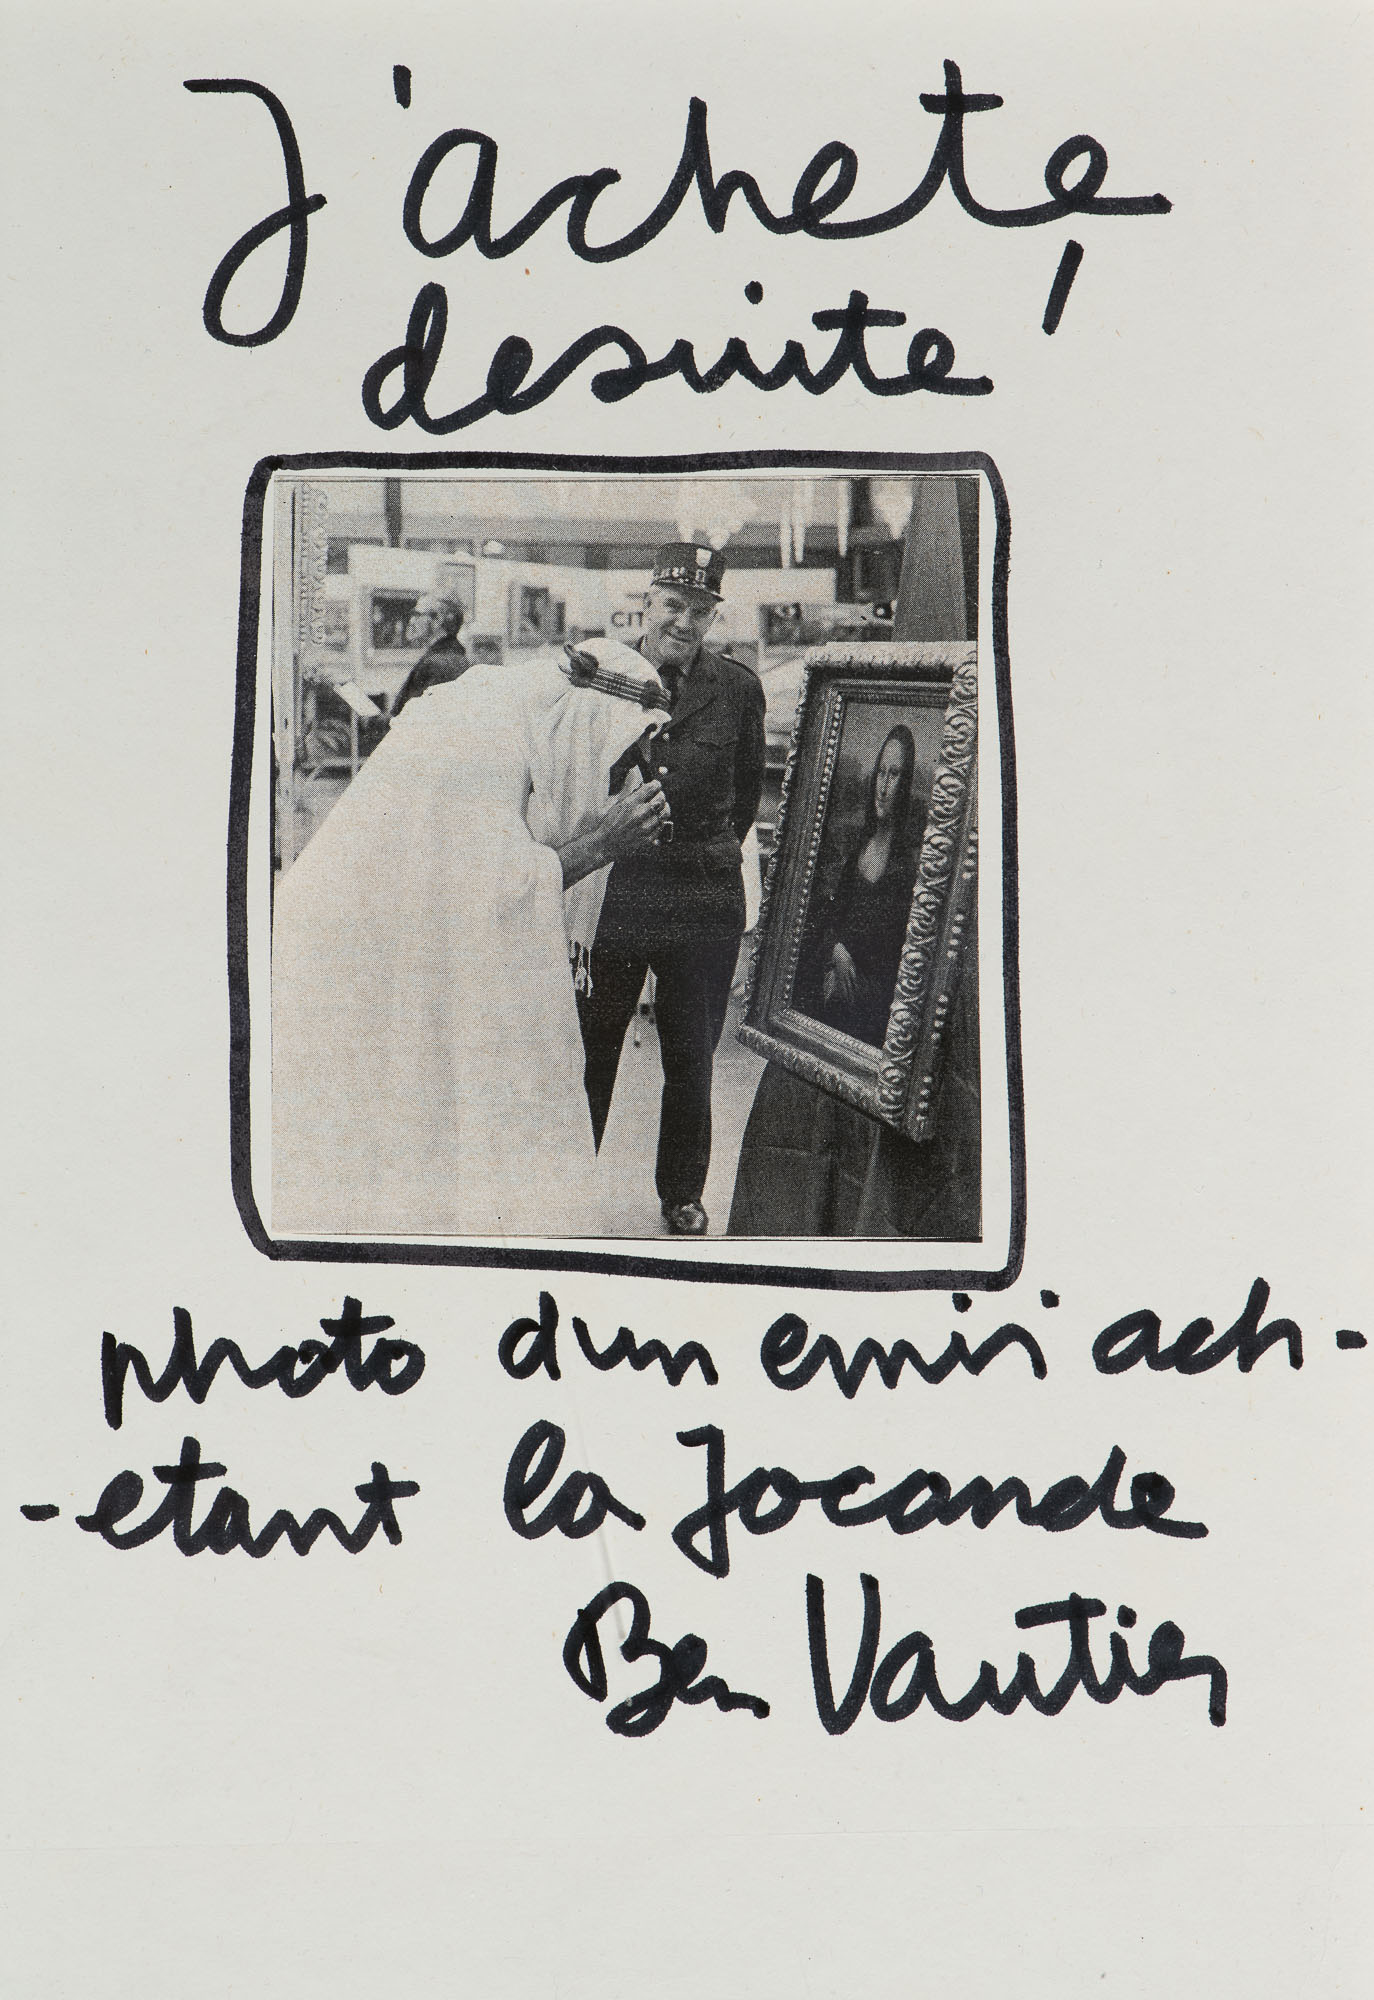 J'achete,
desuite
CIT
photo dun emir ach-
-etant la Jocande
Ben Vautier